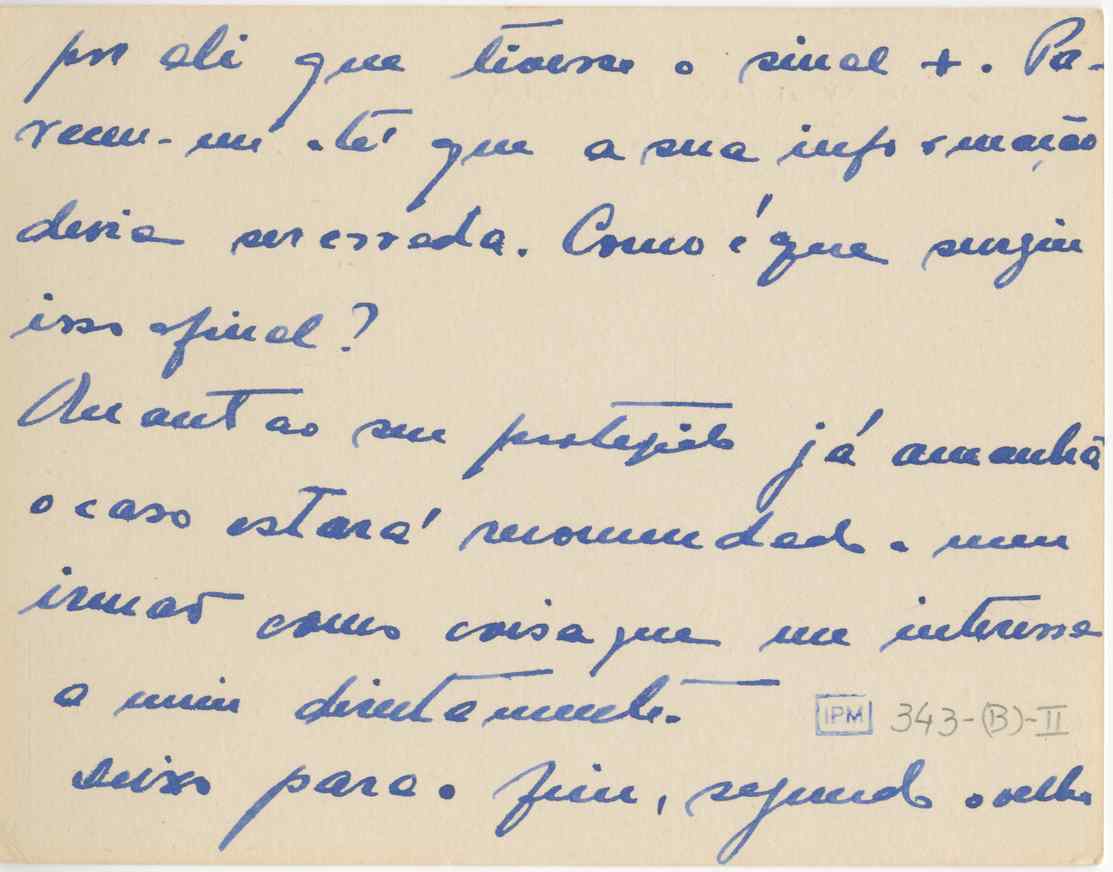 por ali que tivesse o sinal +. Pa-
receu-me até que a sua informação
devia ser errada. Como é que surgiu
isso afinal?
Quanto ao seu protegido já amanhã
o caso estará recomendado a meu
irmão como coisa que me interessa
a mim directamente.
Deixo para o fim, segundo o velho
IPM 343-(B)-II